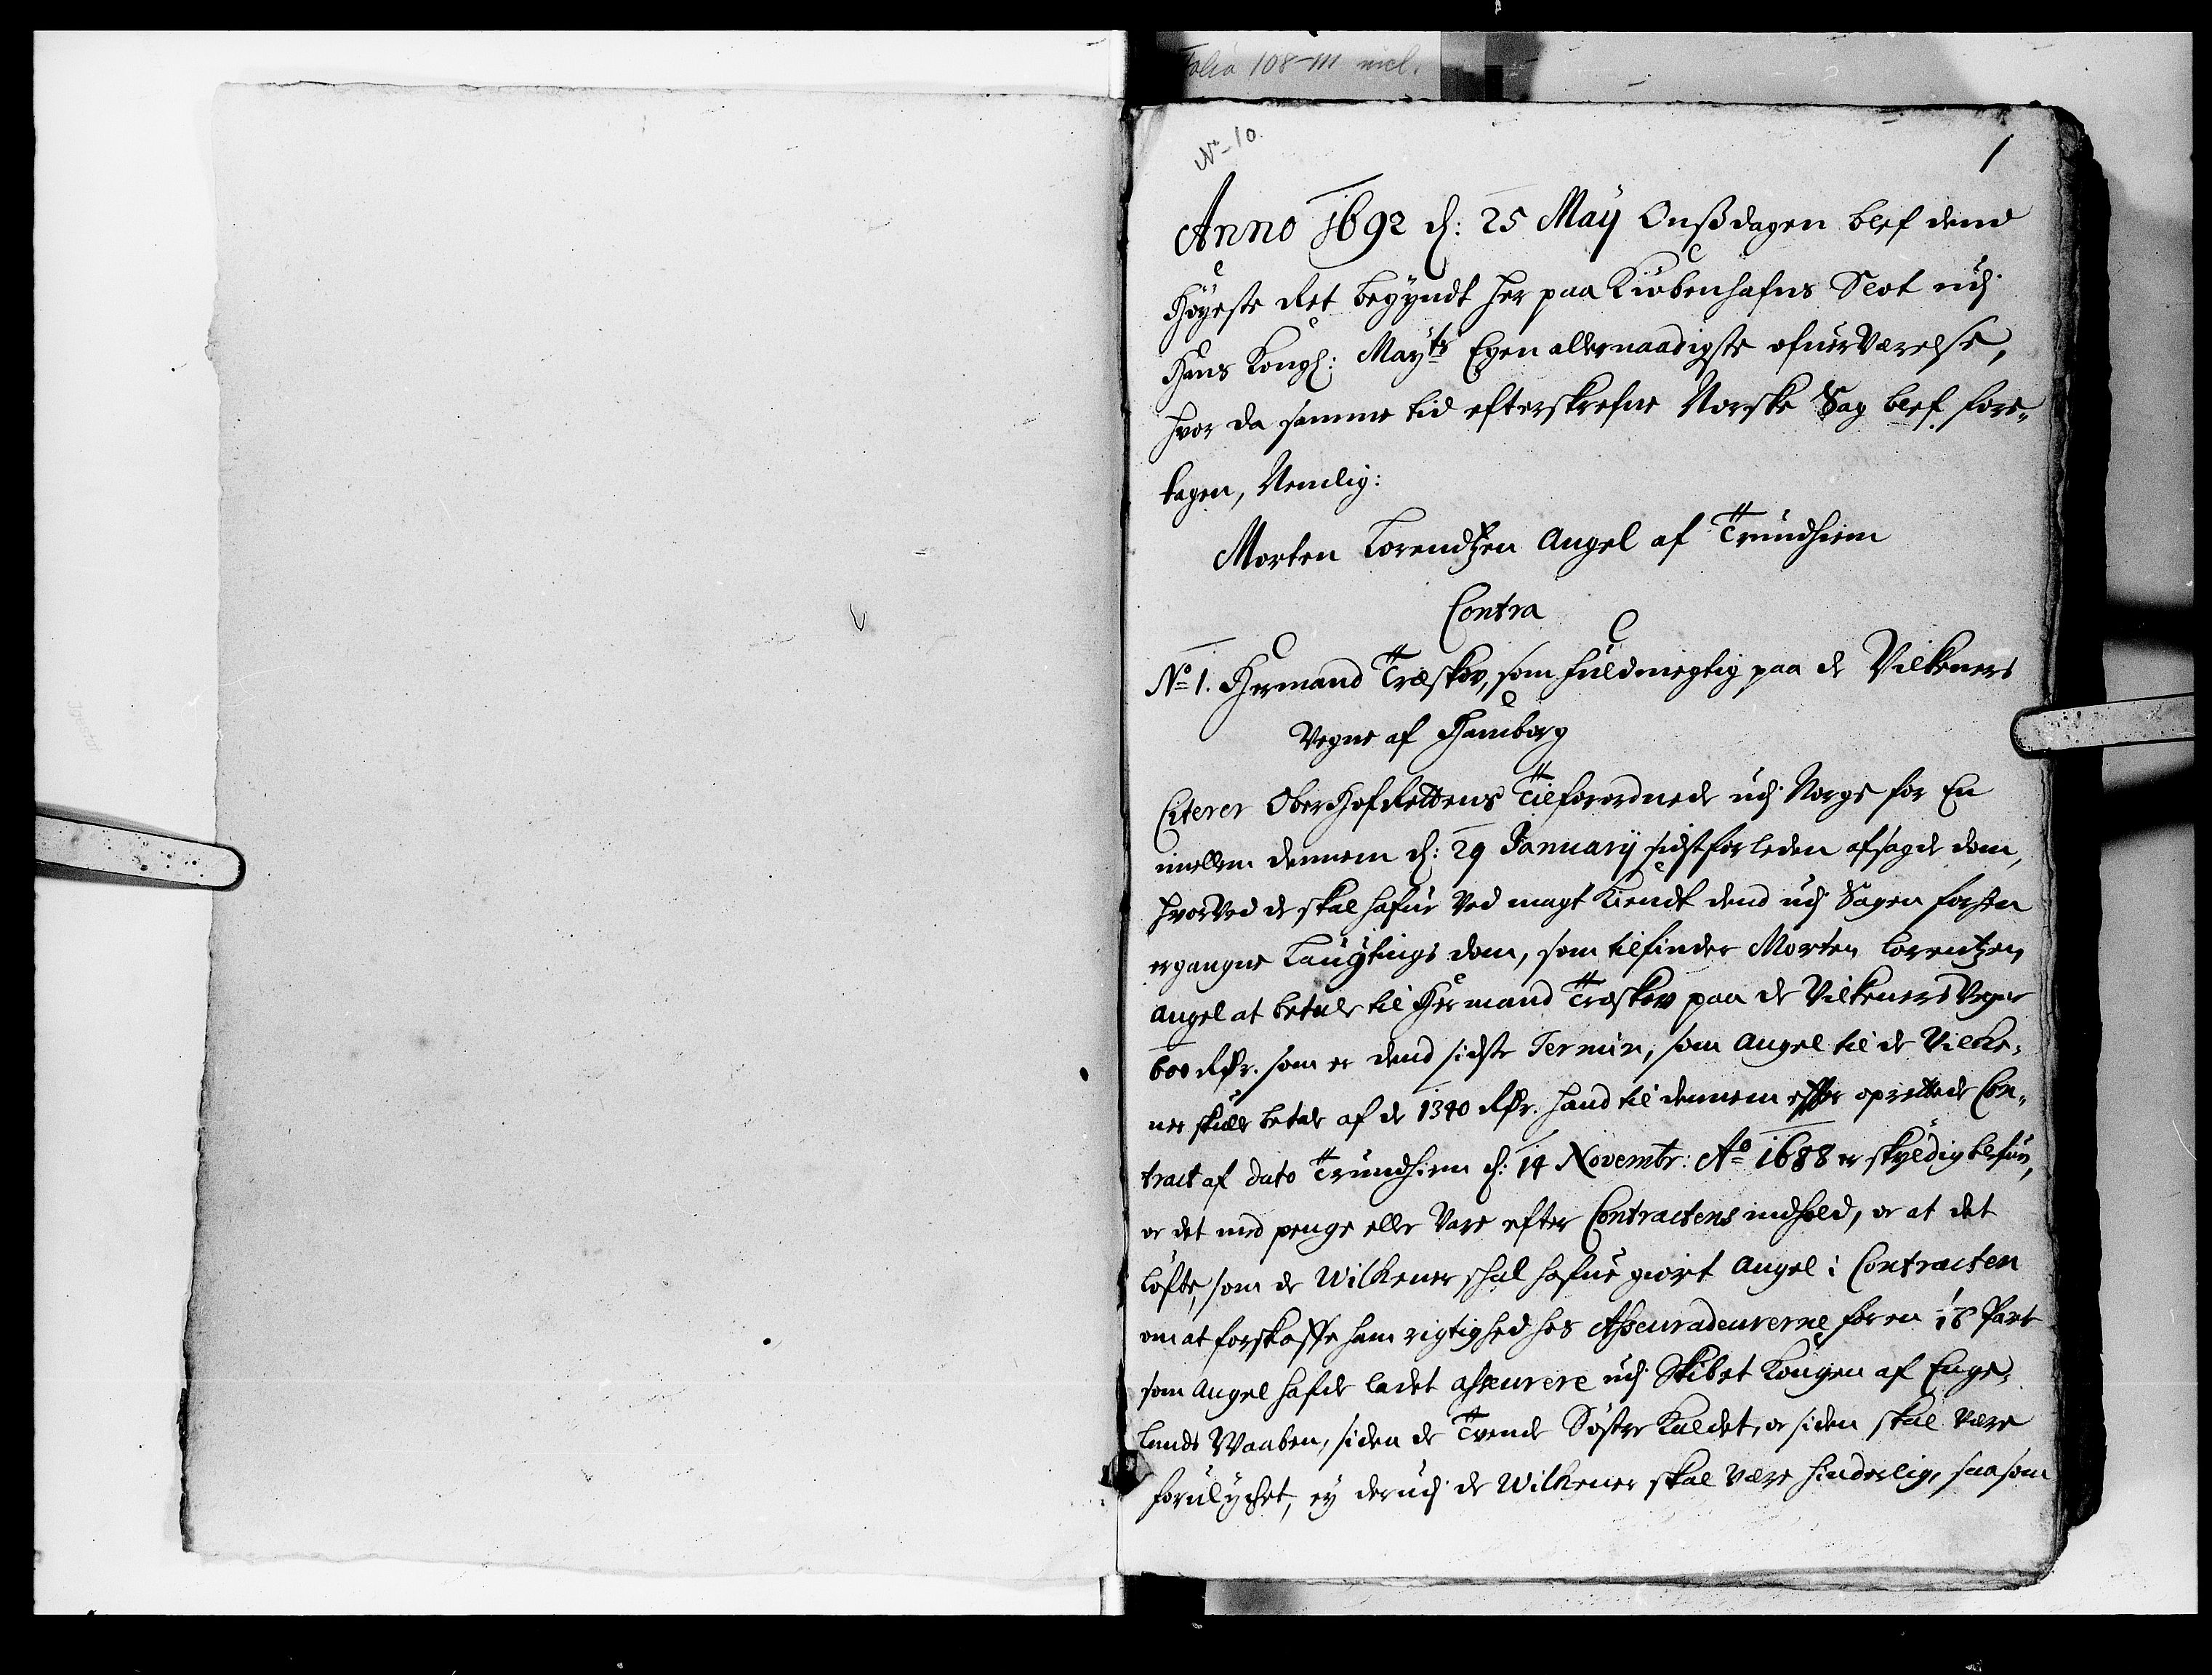 Folia 108-111 incl.
No 10.
1
Anno 1692 d: 25 Maij Onßdagen blef dend
Høyeste Ret begyndt her paa Kiøbenhafns Slot udj
Hans Kongl: Mayts Egen allernaadigste ofverværelse,
hvor da samme tid efterskrefne Norske Sag blef fore-
tagen, Nemlig:
Morten Lorendtzen Angel af Trundhiem
Contra
No 1. Hermand Træskov, som fuldmegtig paa de Vilkeners
Vegne af Hamborg
Citerer OberHofRettens Tilforordnede udj Norge for En
imellem dennem d: 29 Januarij sidstforleden afsagde dom,
hvorved de skal hafue ved magt kiendt dend udj Sagen forhen
ergangne Laugtings dom, som tilfinder Morten Lorentzen
Angel at betale til Hermand Træskov paa de Vilkeners Vegne
600 Rdr. som er dend sidste Termin, som Angel til de Vilke-
ner skulle betale af de 1340 Rdr. hand til dennem effter oprettede Con-
tract af dato Trundhiem d: 14 Novembr: Ao 1688 er skyldig blefuen,
og det med penge eller Vare efter Contractens indhold, og at det
løfte, som de Wilkener skal hafue giort Angel i Contracten
om at forskaffe ham rigtighed hos Asseuradeurerne for en 1/16 Part
som Angel hafde ladet asseurere udj Skibet Kongen af Enge-
lands Waaben, siden de Trende Søstre kaldet, og siden skal være
forulychet, ey derudj de Wilkener skal være hinderlig, saasom